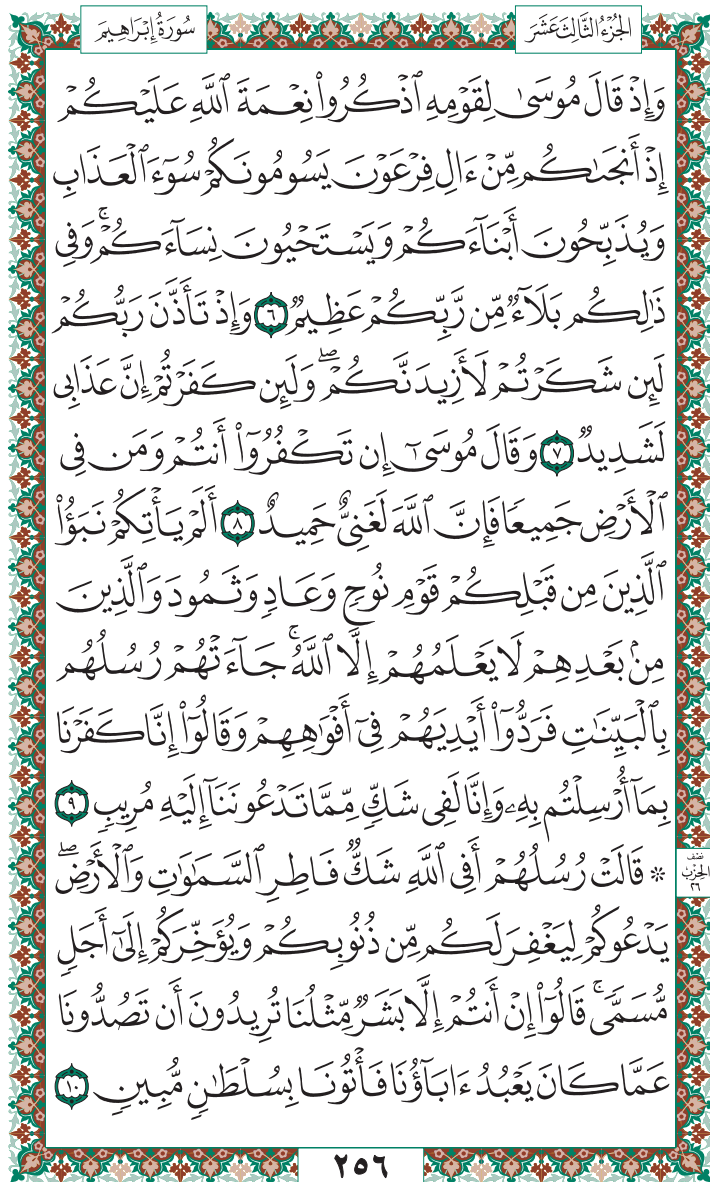 سُورَةُ إِبْرَاهِيمَ
الجُزْءُ الثَّالِثَ عَشَرَ
وَإِذْ قَالَ مُوسَىٰ لِقَوْمِهِ ٱذْكُرُوا۟ نِعْمَةَ ٱللَّهِ عَلَيْكُمْ
إِذْ أَنجَىٰكُم مِّنْ ءَالِ فِرْعَوْنَ يَسُومُونَكُمْ سُوٓءَ ٱلْعَذَابِ
وَيُذَبِّحُونَ أَبْنَآءَكُمْ وَيَسْتَحْيُونَ نِسَآءَكُمْ ۚ وَفِى
ذَٰلِكُم بَلَآءٌ مِّن رَّبِّكُمْ عَظِيمٌ ٦ وَإِذْ تَأَذَّنَ رَبُّكُمْ
لَئِن شَكَرْتُمْ لَأَزِيدَنَّكُمْ ۖ وَلَئِن كَفَرْتُمْ إِنَّ عَذَابِى
لَشَدِيدٌ ٧ وَقَالَ مُوسَىٰٓ إِن تَكْفُرُوٓا۟ أَنتُمْ وَمَن فِى
ٱلْأَرْضِ جَمِيعًا فَإِنَّ ٱللَّهَ لَغَنِىٌّ حَمِيدٌ ٨ أَلَمْ يَأْتِكُمْ نَبَؤُا۟
ٱلَّذِينَ مِن قَبْلِكُمْ قَوْمِ نُوحٍ وَعَادٍ وَثَمُودَ وَٱلَّذِينَ
مِنۢ بَعْدِهِمْ لَا يَعْلَمُهُمْ إِلَّا ٱللَّهُ ۚ جَآءَتْهُمْ رُسُلُهُم
بِٱلْبَيِّنَـٰتِ فَرَدُّوٓا۟ أَيْدِيَهُمْ فِىٓ أَفْوَٰهِهِمْ وَقَالُوٓا۟ إِنَّا كَفَرْنَا
بِمَآ أُرْسِلْتُم بِهِۦ وَإِنَّا لَفِى شَكٍّ مِّمَّا تَدْعُونَنَآ إِلَيْهِ مُرِيبٍ ٩
۞ قَالَتْ رُسُلُهُمْ أَفِى ٱللَّهِ شَكٌّ فَاطِرِ ٱلسَّمَـٰوَٰتِ وَٱلْأَرْضِ ۖ
نِصْف
الحِزْبِ
٢٦
يَدْعُوكُمْ لِيَغْفِرَ لَكُم مِّن ذُنُوبِكُمْ وَيُؤَخِّرَكُمْ إِلَىٰٓ أَجَلٍ
مُّسَمًّى ۚ قَالُوٓا۟ إِنْ أَنتُمْ إِلَّا بَشَرٌ مِّثْلُنَا تُرِيدُونَ أَن تَصُدُّونَا
عَمَّا كَانَ يَعْبُدُ ءَابَآؤُنَا فَأْتُونَا بِسُلْطَـٰنٍ مُّبِينٍ ١٠
٢٥٦